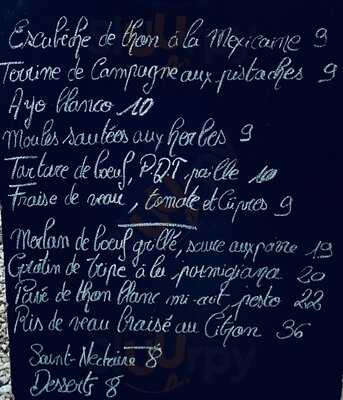 Escabèche de thon à la Mexicaine 9
Terrine de Campagne aux pistaches 9
Ajo blanco 10
Moules sautées aux herbes 9
Tartare de boeuf, P.D.T, paille 10
Fraise de veau, tomate et Câpres 9
Merlan de boeuf grillé, sauce aux poivre 19
Gratin de tripe à la parmigiana 20
Pavé de thon blanc mi-cuit, pesto 22
Ris de veau braisé au Citron 36
Saint-Nectaire 8
Desserts 8